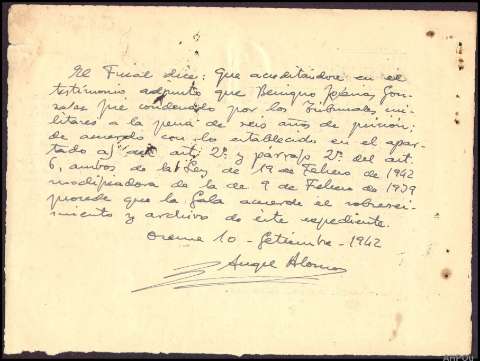 El Fiscal dice: Que acreditándose en el
testimonio adjunto que Benigno
fué condenado por los Tribunales mi-
litares a la pena de seis años de prisión;
de acuerdo con lo establecido en el apar-
tado a) del art. 2º y párrafo 2º del art.
6, ambos de la Ley de 19 de Febrero de 1942
modificadora de la de 9 de Febrero de 1939
procede que la Sala acuerde el sobresei-
miento y archivo de este expediente.
Orense 10 - Setiembre - 1942
Angel Alonso